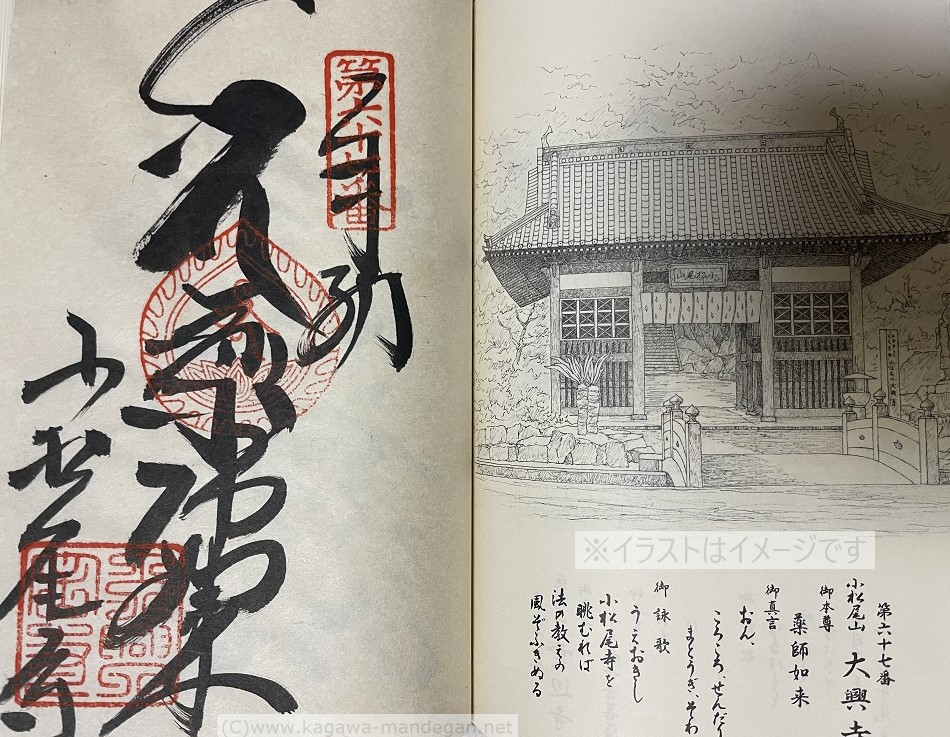 ※イラストはイメージです
第六十七番
小松尾山 大興寺
御本尊
薬師如来
御真言
おん、
ころころ、せんだり
まとうぎ、そわ
御詠歌
うえおきし
小松尾寺を
眺むれば
法の教えの
風ぞふきぬる
第六十七番
奉納
小松尾寺
(C)www.kagawa-mandegan.net